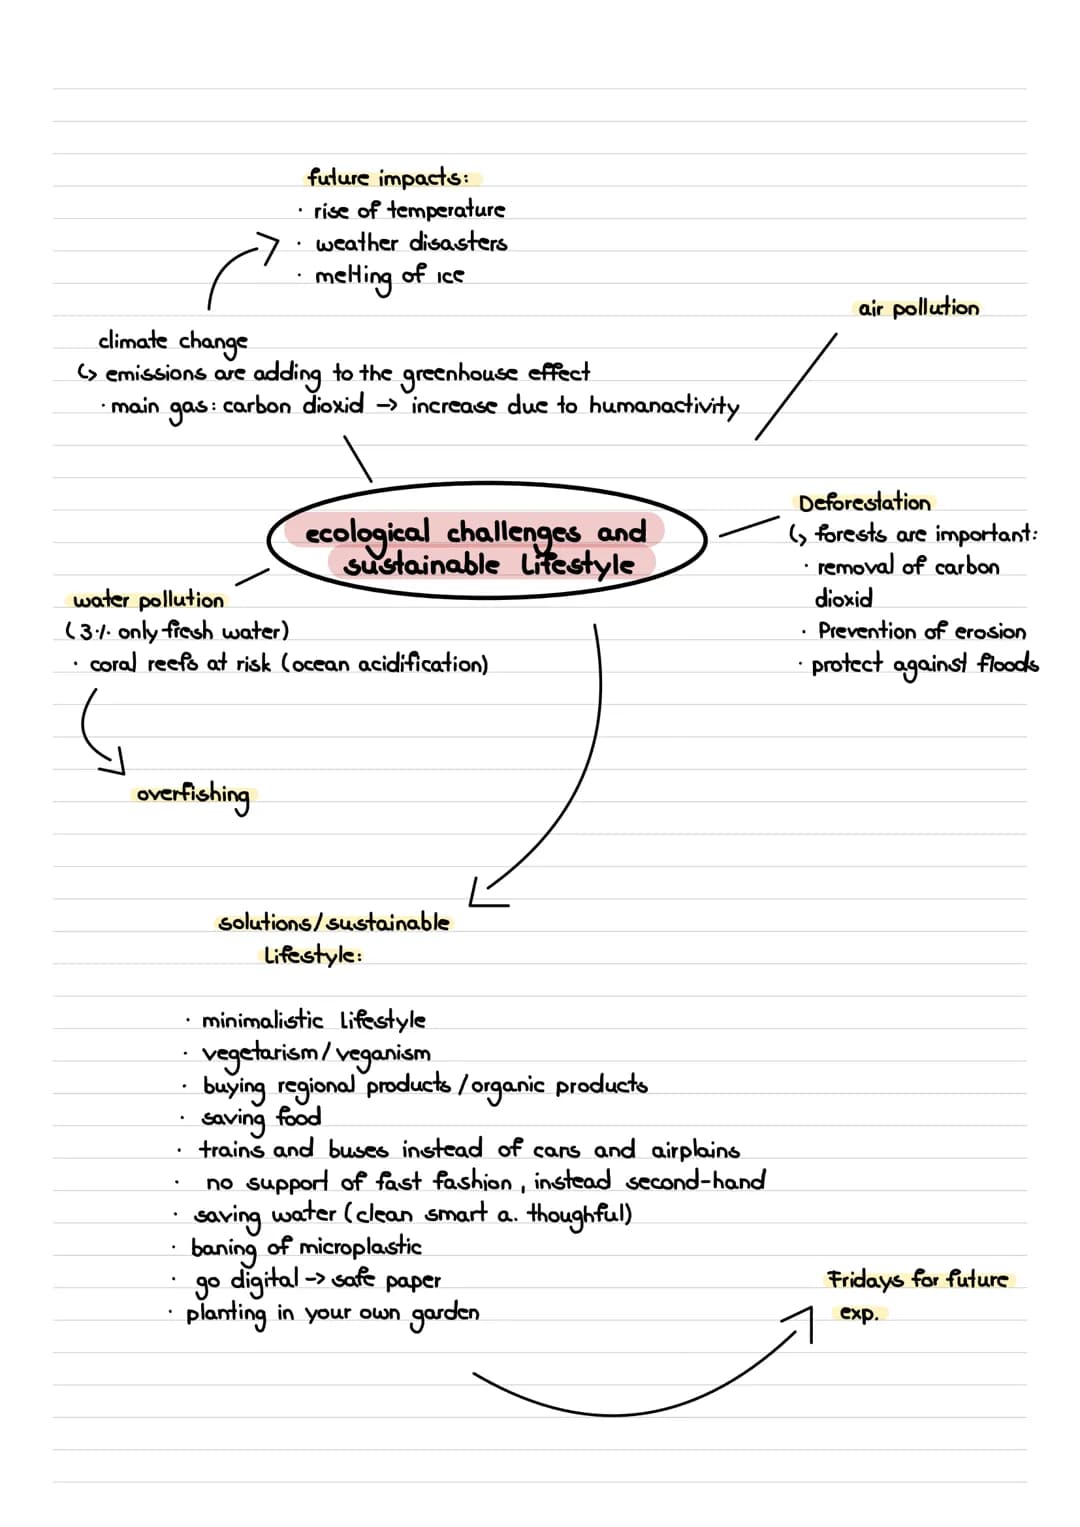 future impacts:
· rise of temperature
· weather disasters
· melting of ice
air pollution
climate change
↳ emissions are adding to the greenhouse effect
· main gas: carbon dioxid → increase due to humanactivity
ecological challenges and
sustainable Lifestyle
Deforestation
↳ forests are important:
· removal of carbon
dioxid
· Prevention of erosion
· protect against floods
water pollution
(3% only fresh water)
· coral reefs at risk (ocean acidification)
overfishing
solutions/sustainable
Lifestyle:
· minimalistic Lifestyle
· vegetarism/veganism
· buying regional products/organic products
· saving food
· trains and buses instead of cars and airplains
· no support of fast fashion, instead second-hand
· saving water (clean smart a. thoughful)
· baning of microplastic
· go digital → safe paper
· planting in your own garden
Fridays for future
exp.